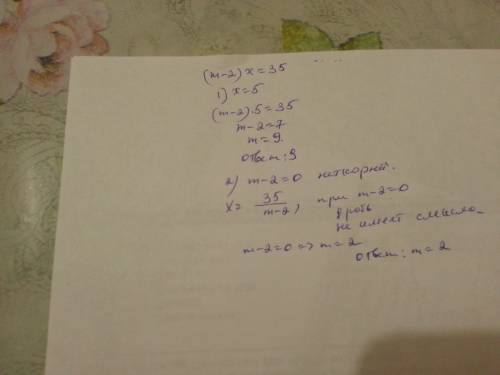 (m-2)x=35
1) x=5
(m-2)·5=35
m-2=7
m=9.
ответ: 9
2) m-2=0 нет корней.
x= 35/m-2, при m-2=0
дробь
не имеет смысла.
m-2=0 => m=2
ответ: m=2